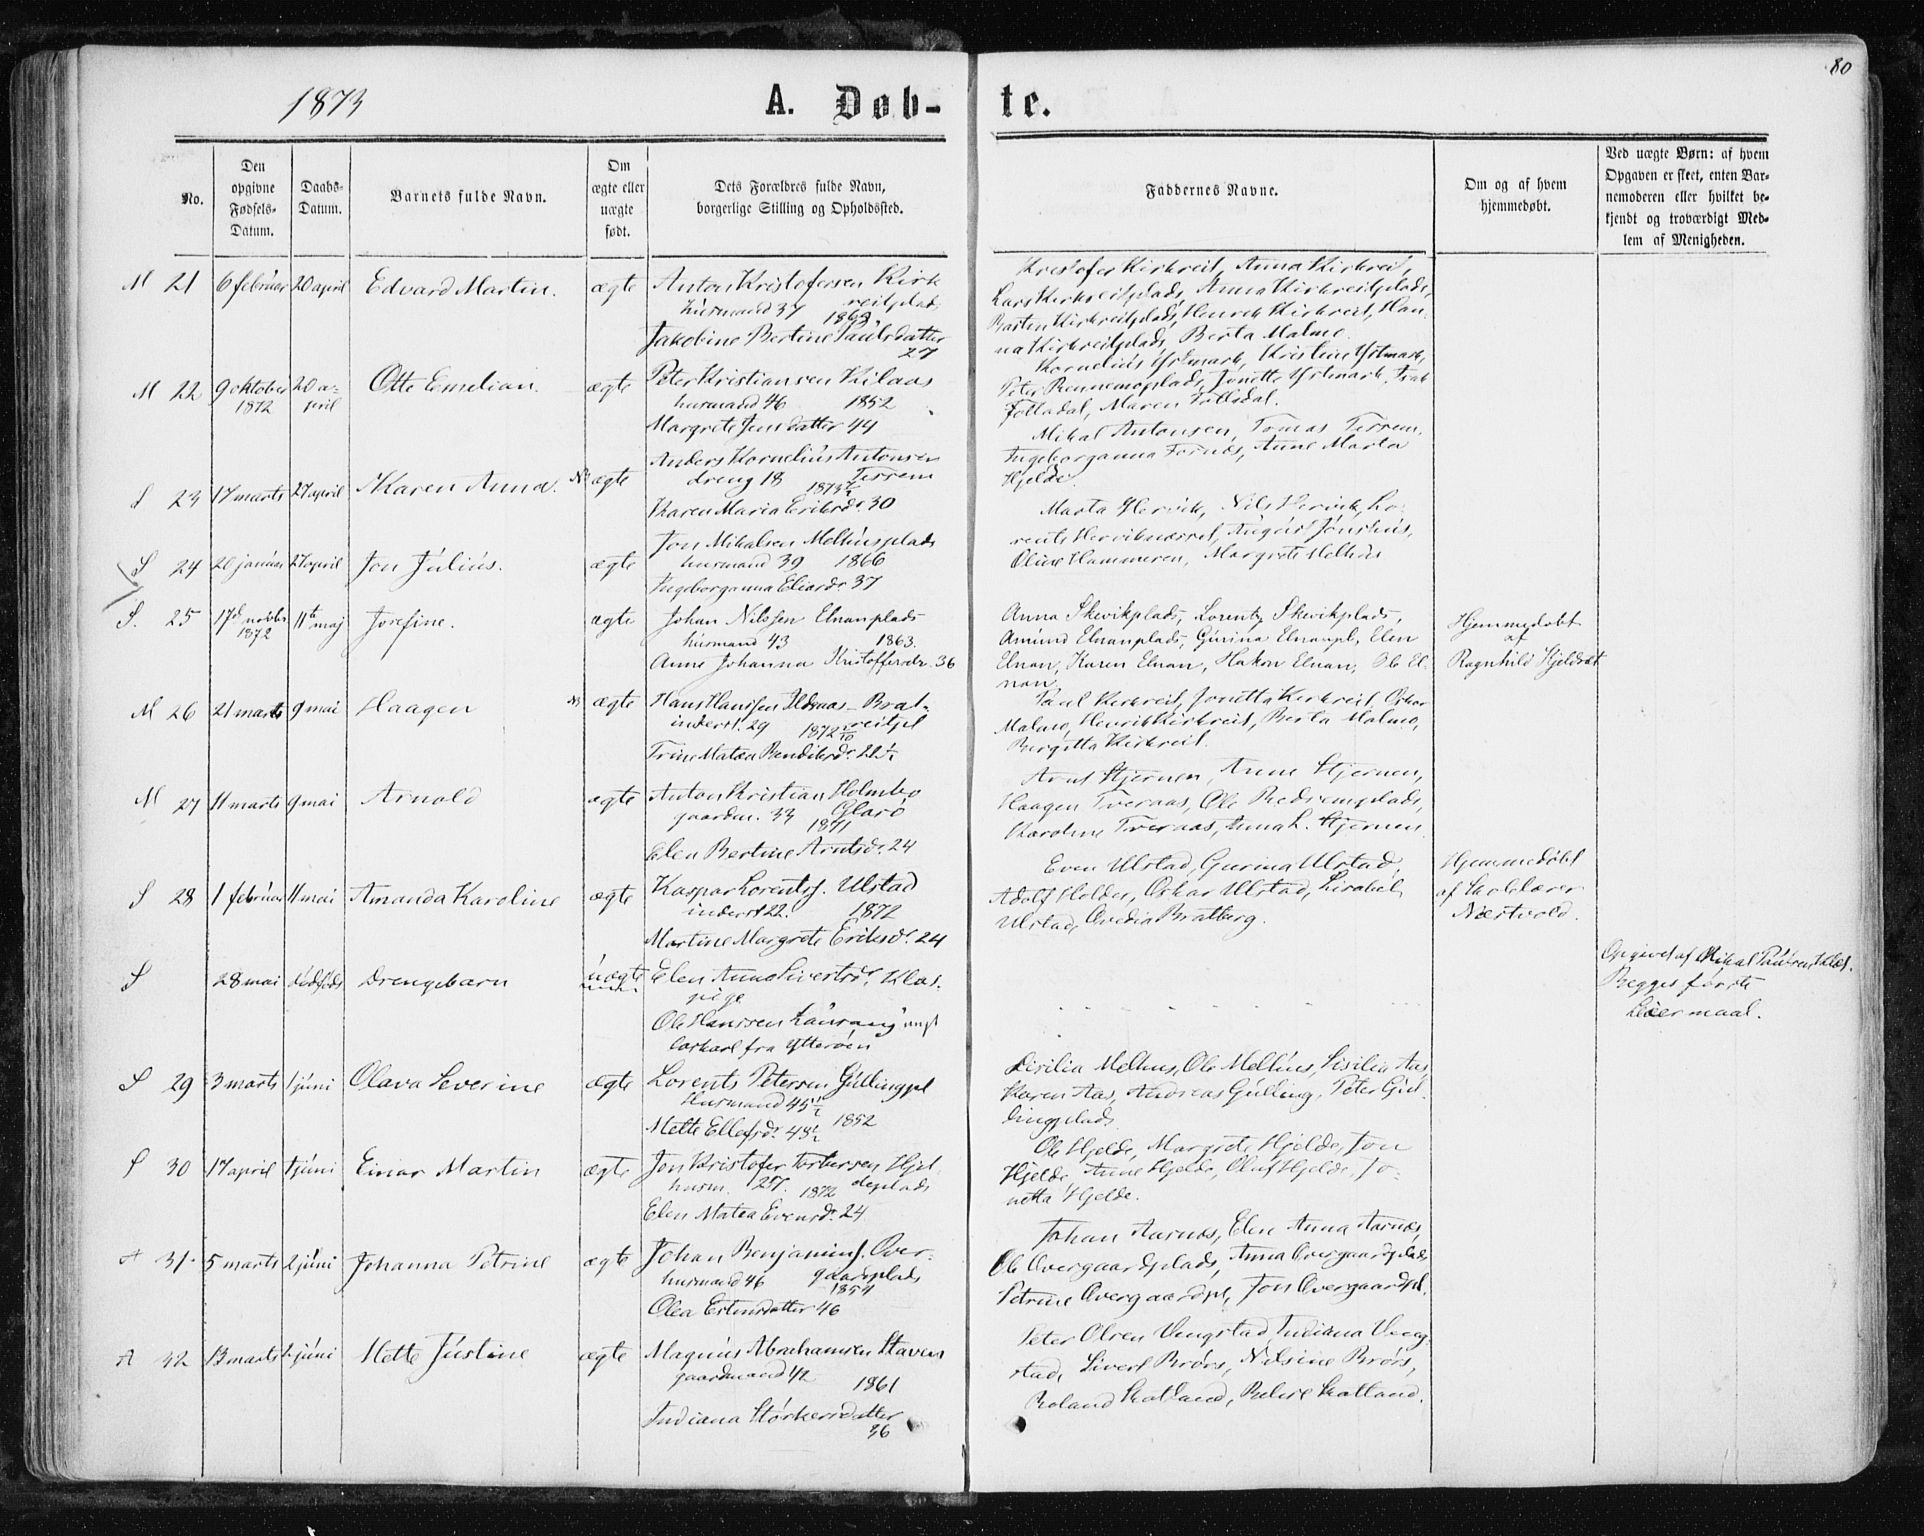 80
1873
A. Døb-
te.
No.
Den
opgivne
Fødsels-
Datum.
Daabs-
Datum.
Barnets fulde Navn.
Om
ægte eller
uægte
født.
Dets Forældres fulde Navn,
borgerlige Stilling og Opholdssted.
Faddernes Navne.
Om og af hvem
hjemmedøbt.
Ved uægte Børn: af hvem
Opgaven er skeet, enten Bar-
nemoderen eller hvilket be-
kjendt og troværdigt Med-
lem af Menigheden.
M 21 6 februar 20 april Edvard Martin. ægte Anton Kristofersen Kirk
reitplads
husmand 37 1863.
Jakobine Bertine Paulsdatter
27
Kristofer Kirkreit, Anna Kirkreit,
Lars Kirkreitplads, Anna Kirkreitplads,
Basten Kirkreitplads, Henrik Kirkreit, Han-
na Kirkreitplads, Berta Malmo.
M 22 9 oktober 20 a- Otte Emelian. ægte Peter Kristiansen Kilaas
1872 pril husmand 46 1852
Margrete Jensdatter 44
Kornelius Ystmark, Kristine Ystmark,
Peter Rennemoplads, Jonetta Ystmark, Isak
Folladal, Maren Folladal.
S 23 17 marts 27 april Karen Anna. ægte
Anders Kornelius Antonsen
dreng 18 Terrem
1873
Karen Maria Eriksdr 30
Mikal Antonsen, Tomas Terrem,
Ingeborganna Fornes, Anne Marta
Hjelde.
S 24 20 januar 27 april Jon Julius. ægte
Jon Mikalsen Melhusplads
husmand 39 1866
Ingeborganna Eliasdr 37
Marta Hervik, Nils Hervik, Lo-
rents Herviknæsset, August Jonshus,
Oline Hammeren, Margrete Melhus
S. 25 17d novbr 11te maj Josefine. ægte Johan Nilssen Elnanplads
1872 husmand 43 1863.
Anne Johanna Kristoffersdr. 36
Anna Skevikplads, Lorentz Skevikplads,
Amund Elnanplads, Gurina Elnanpl, Elen
Elnan, Karen Elnan, Hakon Elnan, Ole El-
nan.
Hjemmedøbt
af
Ragnhild Hjeldset
M 26 21 marts 9 mai Haagen ægte Hans Hanssen Aldernæs - Brat-
reitpl
inderst. 29 1872
Trine Matea Bendiksdr. 22
Paul Kirkreit, Jonetta Kirkreit, Oskar
Malmo, Henrik Kirkreit, Berta Malmo,
Bergitta Kirkreit.
M 27 11 marts 9 mai Arnold ægte Anton Kristian Holmbo
gaardm. 33 Glarø
1871
Elen Bertine Arntsdr. 24
Arnt Stjernen, Anne Stjernen,
Haagen Tvernaas, Ole Rediemplads,
Karoline Tvernaas, Anna L. Stjernen.
S 28 1 februar 11 mai Amanda Karoline ægte Kaspar Lorentss. Ulstad
inderst 22. 1872
Martine Margrete Eriksdr. 24
Even Ulstad, Gurina Ulstad,
Adolf Holder, Oskar Ulstad, Lisabet
Ulstad, Ovedia Bratberg.
Hjemmedøbt
af Skolelærer
Næstvold.
S 28 mai dødføds Drengebarn uægte Elen Anna Sivertsdr. Klos
pige
Ole Hanssen Lausang ungk
fra Ytterøen
Opgivet af Mikal Paulsen
Begges første
Leiermaal.
S 29 3 marts 1 juni Olava Severine ægte Lorents Petersen Gullingpl
Husmand 45
Mette Ellefsdr. 43 1852
Sisilia Melhus, Ole Melhus, Sisilia Aas,
Karen Aas, Andreas Gulling, Peter Gul-
lingplads
S 30 17 april 1 juni Einar Martin ægte Jon Kristofer Torbersen Hjel-
deplads
husm. 25. 1872
Elen Matea Evensdr. 24
Ole Hjelde, Margrete Hjelde, Jon
Hjelde, Anne Hjelde, Oluf Hjelde, Jo-
netta Hjelde.
A 31. 5 marts 2 juni Johanna Petrine ægte Johan Benjamins. Over-
gaardplads
husmand 46 1854
Olea Estensdatter 46
Johan Aarnes, Elen Anna Aarnes,
Ole Overgaardplads, Anna Overgaardplads
Petrine Overgaardpl, Jon Overgaardpl.
A 32 13 marts 2 juni Mette Justine ægte Magnus Abrahamsen Staven
gaardmand 42 1861
Indiana Størkersdatter
36
Peter Olsen Vengstad, Indiana Veng-
stad, Sivert Brørs, Nilsine Brørs,
Roland Skatland, Skatland.